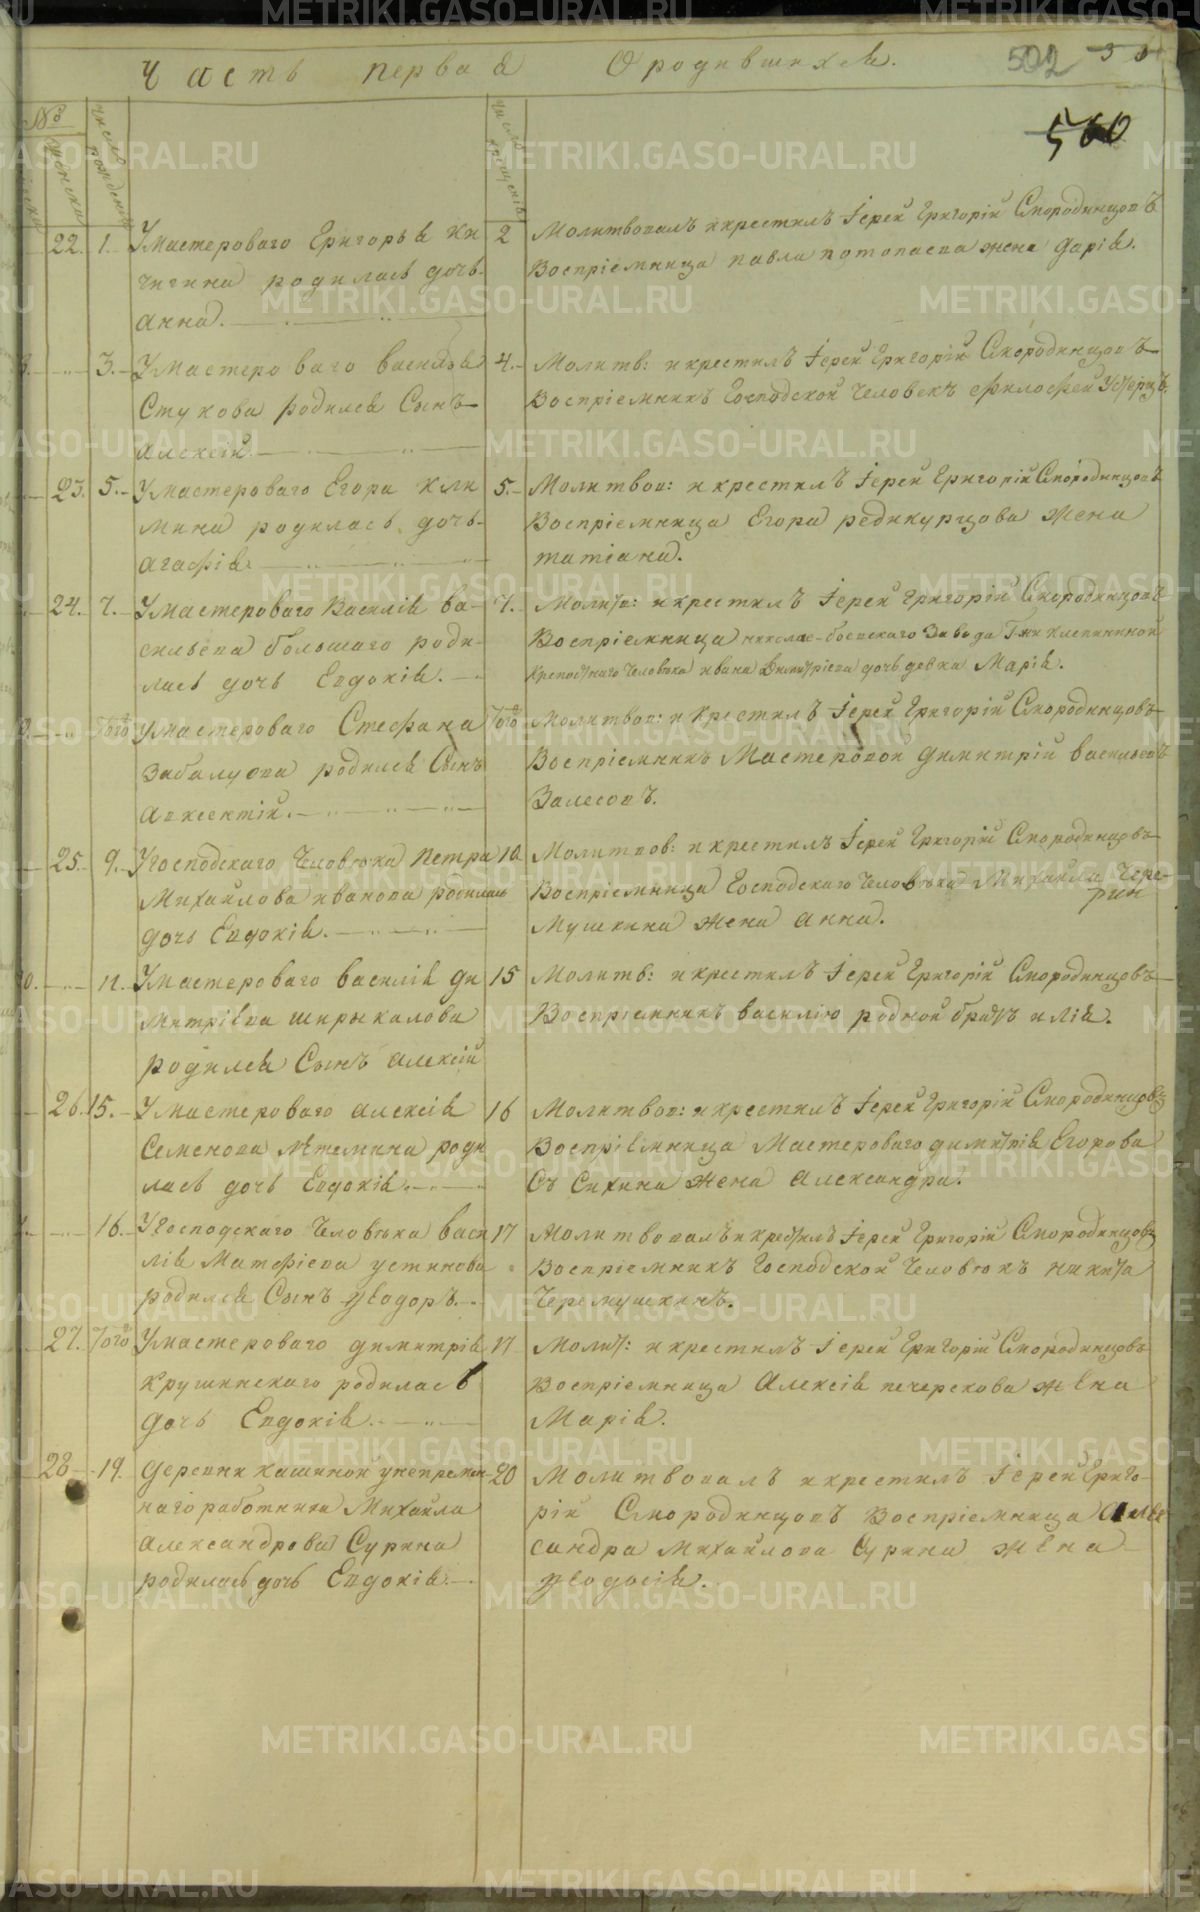 Часть первая О родившихся.
502
560
№
женска
число рождения
число крещенія
22. 1. У Мастероваго Григорья Ки
чигина родилась дочь
Анна.
2 Молитвовалъ и крестилъ Іерей Григорій Смородинцовъ
Воспріемница павла потопаева жена Дарія.
3. У Мастероваго Василья
Стукова родился Сынъ
Алексій.
4. Молитв: и крестилъ Іерей Григорій Смородинцовъ
Воспріемникъ Господской Человекъ
23. 5. У мастероваго Егора Кли
мина родилась дочь
Агафія.
5. Молитвов: и крестилъ Іерей Григорій Смородинцовъ
Воспріемница Егора редикурцова Жена
татіана.
24. 7. У мастероваго Василія Ва-
сильева большаго роди-
лась дочь Евдокія.
7. Молит: и крестилъ Іерей Григорій Смородинцовъ
Воспріемница Завода
крепостнаго Человѣка ивана Димитріева дочь девка Марія.
того У мастероваго Стефана
Забалуева родился Сынъ
Авксентій.
того Молитвов: и крестилъ Іерей Григорій Смородинцовъ
Воспріемникъ Мастеровой Димитрій васильевъ
Залесовъ.
25. 9. У господскаго Человѣка Петра
Михайлова иванова родилась
дочь Евдокія.
10 Молитвов: и крестилъ Іерей Григорій Смородинцовъ
Воспріемница Господскаго Человѣка Михаила Чере-
мушкина Жена Анна.
0. 11. У мастероваго василія Ди
митріева ширыкалова
родился Сынъ Алексій
15 Молитв: и крестилъ Іерей Григорій Смородинцовъ
Воспріемникъ василію родной братъ илія.
26. 15. У мастероваго Алексія
Семенова лѣтемина роди
лась дочь Евдокія.
16 Молитвов: и крестилъ Іерей Григорій Смородинцовъ
Воспріемница Мастероваго димитрія Егорова
Жена Александра.
16. У Господскаго Человѣка Васи
лія Матфіева устинова
родился Сынъ Ѳеодоръ.
17 Молитвовалъ и крестилъ Іерей Григорій Смородинцовъ
Воспріемникъ Господской Человѣкъ никита
Черемушкинъ.
27. того У мастероваго димитрія
Крушинскаго родилась
дочь Евдокія.
17 Молит: и крестилъ Іерей Григорій Смородинцовъ
Воспріемница Алексія печерскова жена
Марія.
28 19. Деревни кашиной у непремен-
наго работника Михайла
Александрова Сурина
родилась дочь Евдокія.
20 Молитвовалъ и крестилъ Іерей Григо-
рій Смородинцовъ Воспріемница Алек
сандра Михайлова Сурина жена
Ѳеодосія.
METRIKI.GASO-URAL.RU